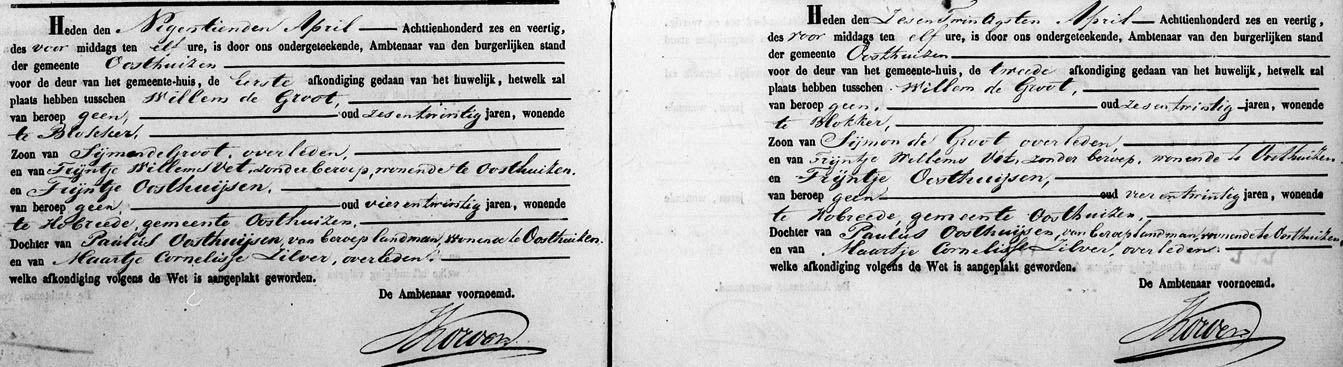 Heden den Negentienden April Achttienhonderd zes en veertig,
des voor middags ten elf ure, is door ons ondergeteekende, Ambtenaar van den burgerlijken stand
der gemeente Oosthuizen
voor de deur van het gemeente-huis, de Eerste afkondiging gedaan van het huwelijk, hetwelk zal
plaats hebben tusschen Willem de Groot,
van beroep geen, oud zes en twintig jaren, wonende
te Blokker,
Zoon van Sijmon de Groot, overleden,
en van Trijntje Willems Vet, zonder beroep, wonende te Oosthuizen.
en Trijntje Oosthuijsen,
van beroep geen, oud vier en twintig jaren, wonende
te Hobreede, gemeente Oosthuizen.
Dochter van Paulus Oosthuijsen, van beroep landman, wonende te Oosthuizen.
en van Maartje Cornelisse Zilver, overleden.
welke afkondiging volgens de Wet is aangeplakt geworden.
De Ambtenaar voornoemd.
Heden den Zes en Twintigsten April Achttienhonderd zes en veertig,
des voor middags ten elf ure, is door ons ondergeteekende, Ambtenaar van den burgerlijken stand
der gemeente Oosthuizen
voor de deur van het gemeente-huis, de tweede afkondiging gedaan van het huwelijk, hetwelk zal
plaats hebben tusschen Willem de Groot,
van beroep geen, oud zes en twintig jaren, wonende
te Blokker,
Zoon van Sijmon de Groot, overleden,
en van Trijntje Willems Vet, zonder beroep, wonende te Oosthuizen.
en Trijntje Oosthuijsen,
van beroep geen oud vier en twintig jaren, wonende
te Hobreede, gemeente Oosthuizen.
Dochter van Paulus Oosthuijsen, van beroep landman, wonende te Oosthuizen.
en van Maartje Cornelisse Zilver, overleden.
welke afkondiging volgens de Wet is aangeplakt geworden.
De Ambtenaar voornoemd.